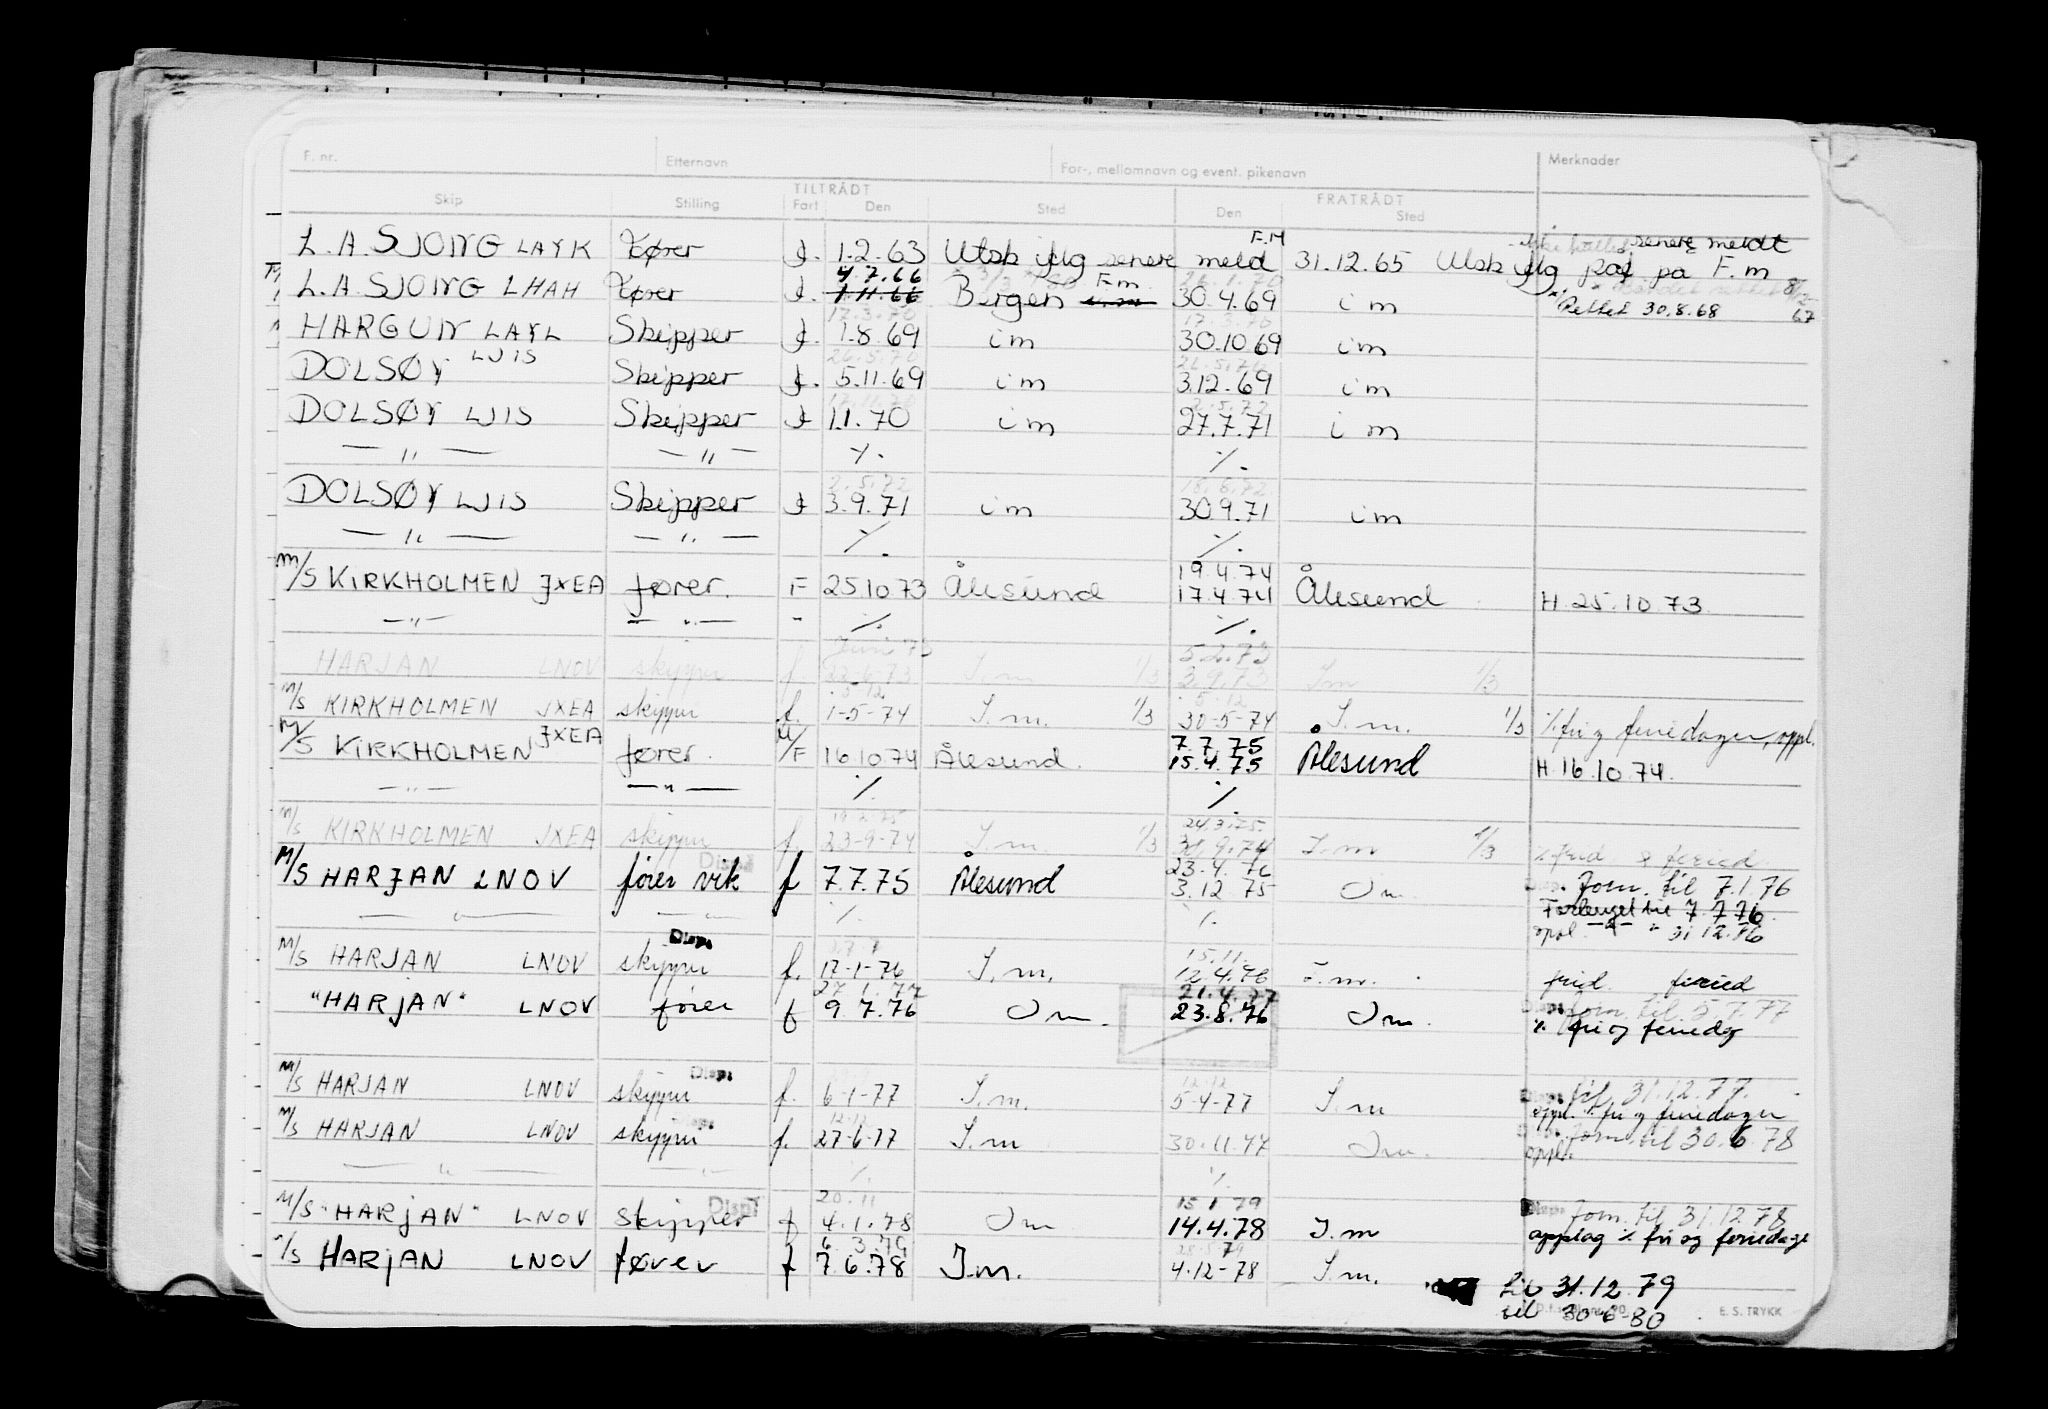 F. nr. Etternavn For-, mellomnavn og event. pikenavn Merknader
TILTRÅDT FRATRÅDT
Skip Stilling Fart Den Sted Den Sted
F.M senere meldt
L.A. SJONG LAYK fører I. 1.2.63 Utsk senere meld 31.12.65 Utsk på F.m
4.7.66 F.m.
L.A. SJONG LHAH fører I. 1.11.66 Bergen 30.4.69 i m Rettet 30.8.68
17.3.70 17.3.70
HARGUN LAYL Skipper I. 1.8.69 i m 30.10.69 i m
26.5.70
DOLSØY LJIS Skipper I. 5.11.69 i m 3.12.69 i m
2.5.72
DOLSØY LJIS Skipper I 1.1.70 i m 27.7.71 i m
— " — — " — %. %.
2.5.72 18.6.72
DOLSØY LJIS Skipper I 3.9.71 i m 30.9.71 i m
— " — — " — %. %.
19.4.74
M/S KIRKHOLMEN JXEA fører. F 25.10.73 Ålesund 17.4.74 Ålesund H. 25.10.73
— " — — " — - %. %.
Juni 73 5.2.73
HARJAN LNOV skipper f 22.6.73 I.m. 1/3 3.9.73 I m 1/3
5.12 5.12
M/S KIRKHOLMEN JXEA skipper f. 1-5-74 I.m. 1/3 30-5-74 I.m. 1/3 % fri og feriedager, oppl.
7.7.75
M/S KIRKHOLMEN JXEA fører. U/F 16.10.74 Ålesund. 15.4.75 Ålesund H. 16.10.74.
— " — — " — %. %.
19.2.75 24.3.75.
M/S KIRKHOLMEN JXEA skipper f. 23-9-74 I.m. 1/3 30.9.74 I.m 1/3 % frid. & feried.
Disp: 23.4.76
M/S HARJAN LNOV fører vik f 7.7.75 Ålesund 3.12.75 Im Forn. til 7.1.76
— " — — " — %. %. Forlenget til 7.7.76.
oppl. — " — " 31.12.76
Disp: 15.11.
M/S HARJAN LNOV skipper f. 17-1-76 I.m. 12.4.76 I.m. frid. feried
27.1.77 21.4.77
"HARJAN" LNOV fører f 9.7.76 Im. 23.8.76 Im. Disp: forn. til 5.7.77
% fri og feriedg
Disp:
M/S HARJAN LNOV skipper f. 6-1-77 I.m. 5-4-77 I.m Disp: til 31.12.77.
oppl. % fri og feriedager
M/S HARJAN LNOV skipper f. 27-6-77 I.m 30.11.77 Im. Disp: forn. til 30.6.78
— " — — " — %. %. oppl.
20.11 Disp: 15.1.79
M/S "HARJAN" LNOV skipper f 4.1.78 Im 14.4.78 I.m Disp: forn. til 31.12.78
6.3.79 opplag % fri og feriedage
M/S HARJAN LNOV fører f 7.6.78 I.m. 4.12-78 I.m. til 31.12.79
til 30-6-80
E. S. TRYKK